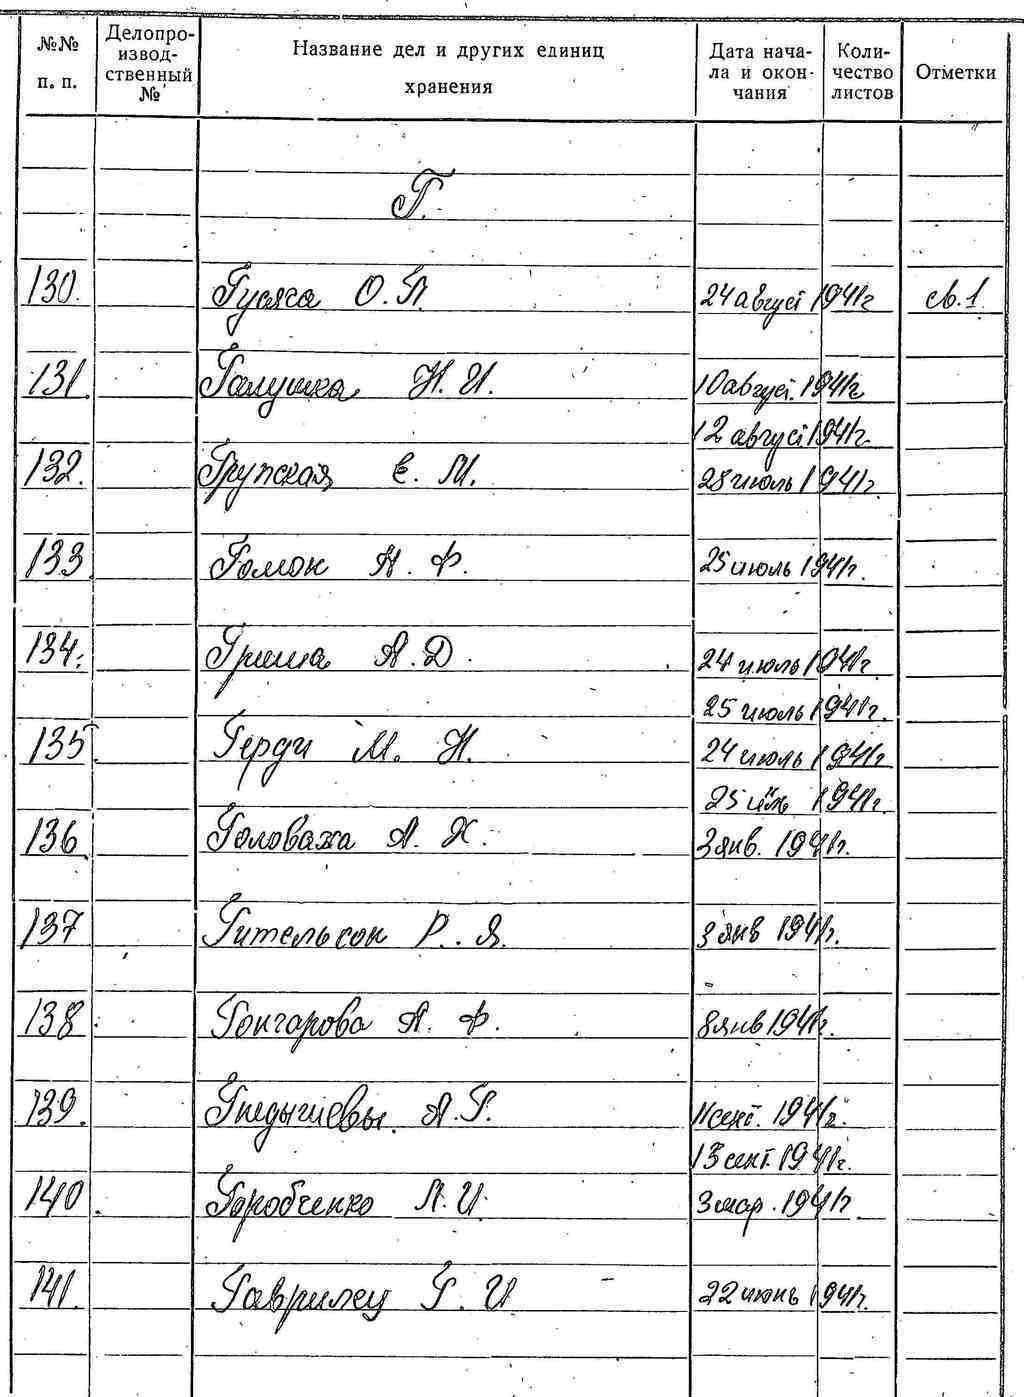 №№ п. п. Делопроизводственный № Название дел и других единиц хранения Дата начала и окончания Количество листов Отметки
Г.
130. Гусяса О.П. 24 август 1941г св. 1
131. Галушка Н.И. 10 август. 1941г.
12 август 1941г.
132. Групская Е.М. 28 июль 1941г.
133. Гомок Н.Ф. 25 июль 1941г.
134. Гриша А.Д. 24 июль 1941г.
25 июль 1941г.
135. Герди М.Н. 24 июль 1941г
25 июль 1941г.
136. Головаха А.Х. 3 янв. 1941г.
137 Гительсон Р.Я. 3 янв 1941г.
138. Гончарова А.Ф. 8 янв 1941г.
139. А.Г. 11 сент. 1941г.
13 сент. 1941г.
140. Горобченко Л.И. 3 мар. 1941г
141. Гаврилец Г.И 22 июнь 1941г.